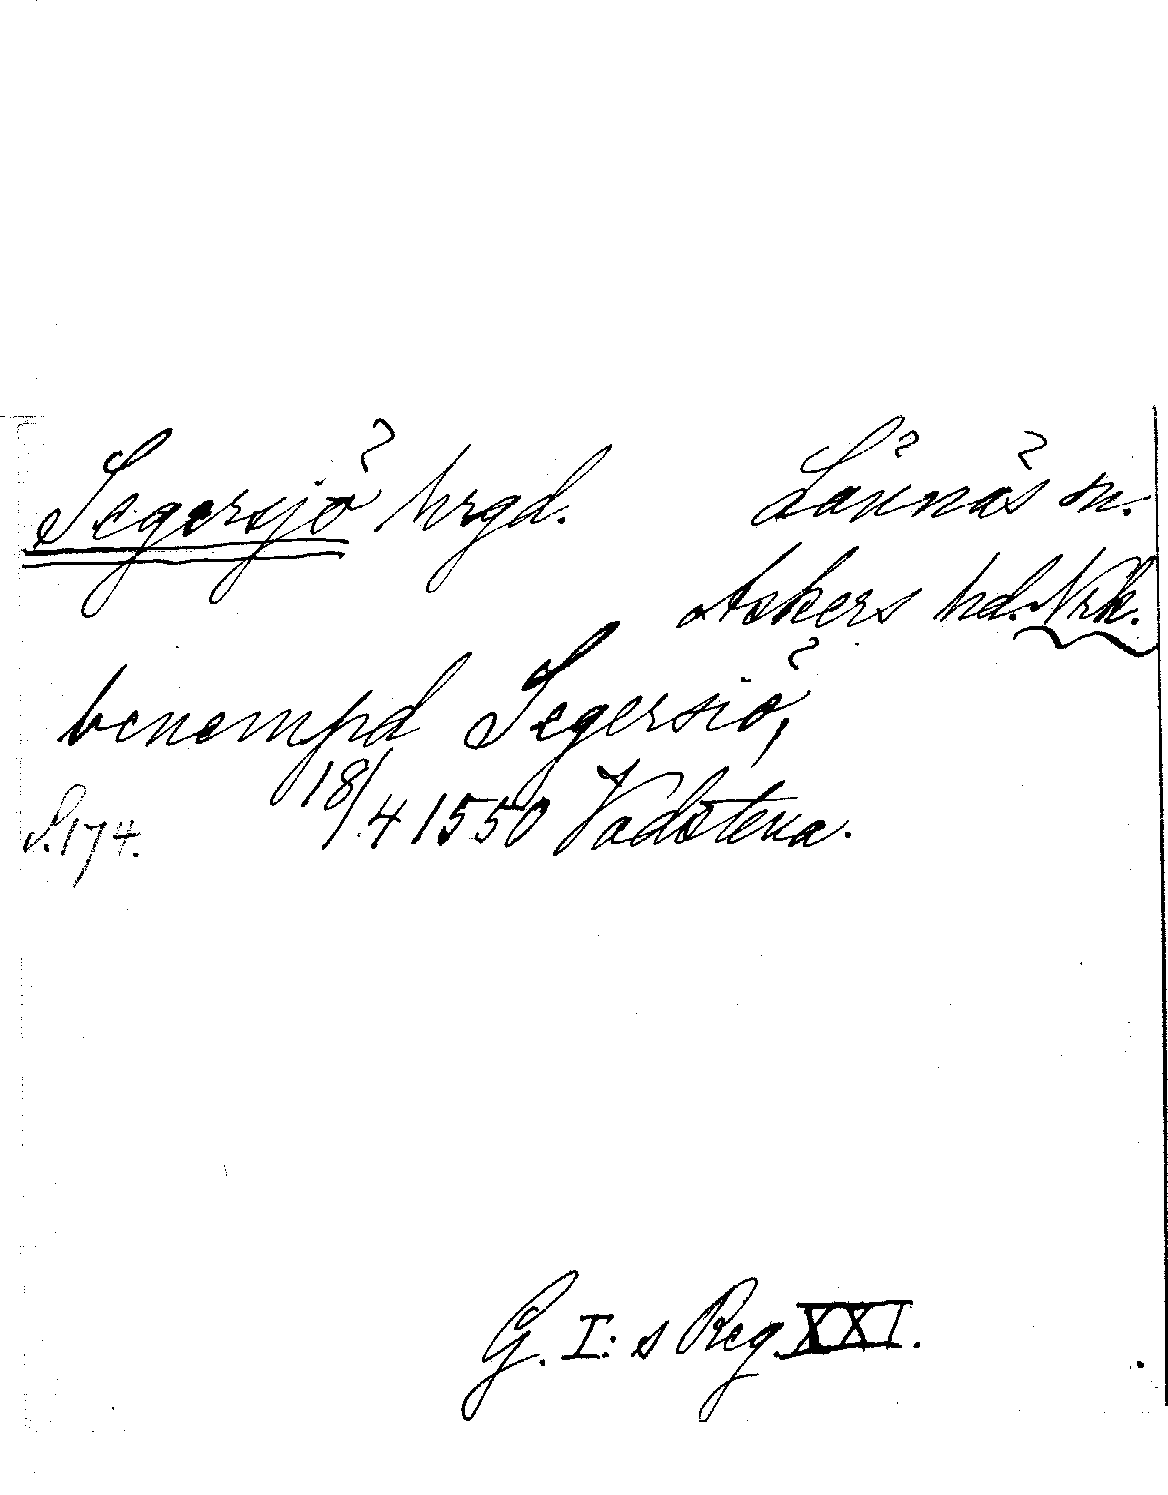 Segersjö hrgd. Lännäs sn.
Askers hd. Nrk.
benempd Segersiö,
S. 174. 18/4 1550 Vadstena.
G. I:s Reg. XXI.